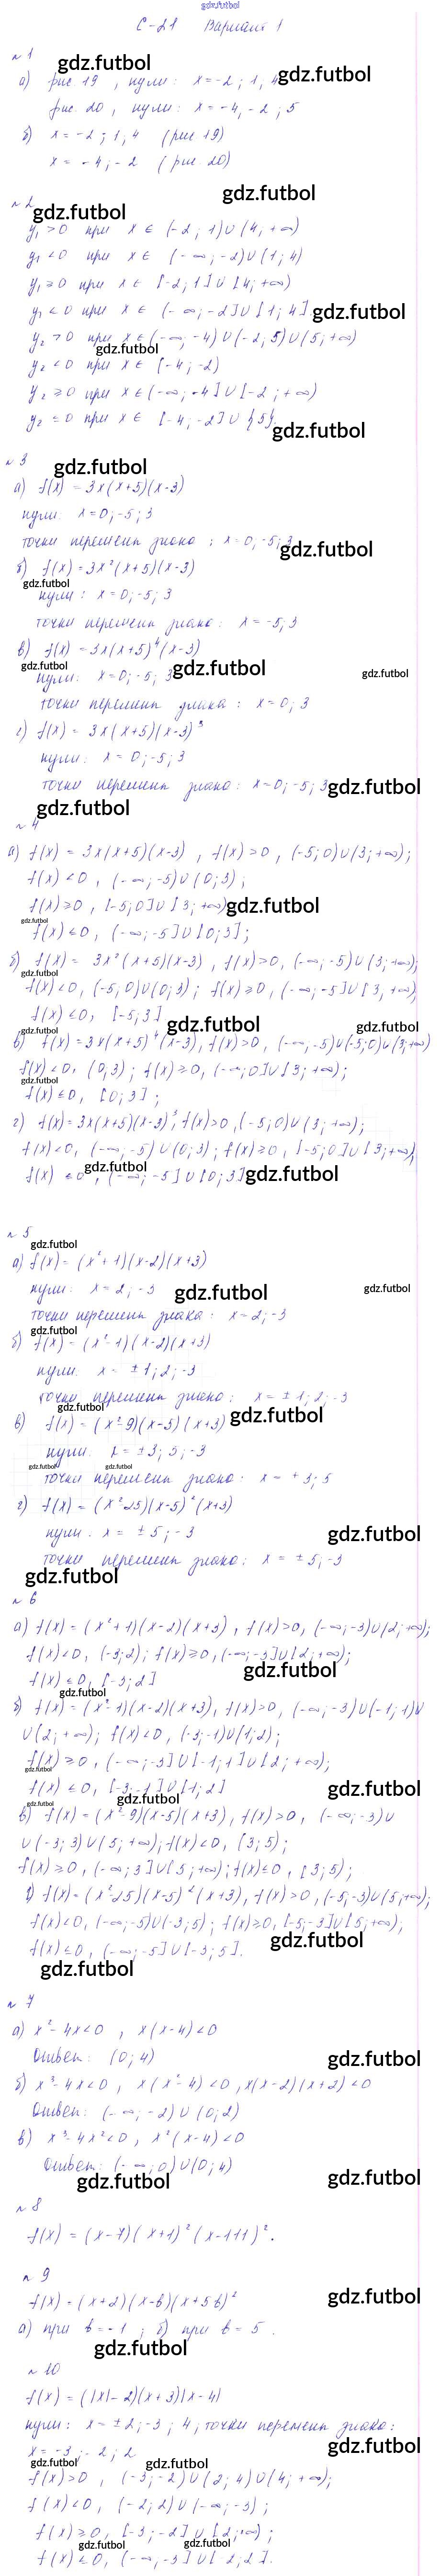 gdz.futbol
С-21 Вариант 1
№ 1
gdz.futbol
а) рис 19, нули: x=-2; 1, 4
gdz.futbol
рис. 20, нули: x=-4, -2; 5
б) x=-2; 1, 4 (рис 19)
x=-4, -2 (рис. 20)
№ 2
gdz.futbol
gdz.futbol
y₁>0 при x∈(-2; 1)∪(4, +∞)
y₁<0 при x∈(-∞; -2)∪(1; 4)
y₁≥0 при x∈[-2; 1]∪[4; +∞)
y₁<0 при x∈(-∞; -2]∪[1; 4]
gdz.futbol
y₂>0 при x∈(-∞; -4)∪(-2; 5)∪(5; +∞)
gdz.futbol
y₂<0 при x∈[-4; -2)
y₂≥0 при x∈(-∞; -4]∪[-2; +∞)
y₂≤0 при x∈[-4; -2]∪{5}.
gdz.futbol
№ 3
gdz.futbol
а) f(x)=3x(x+5)(x-3)
нули: x=0; -5; 3
точки перемены знака: x=0; -5; 3
gdz.futbol
б) f(x)=3x²(x+5)(x-3)
gdz.futbol
нули: x=0; -5; 3
точки перемены знака: x=-5; 3
в) f(x)=3x(x+5)⁴(x-3)
gdz.futbol gdz.futbol gdz.futbol
нули: x=0; -5; 3
точки перемены знака: x=0; 3
г) f(x)=3x(x+5)(x-3)³
нули: x=0; -5; 3
точки перемены знака: x=0; -5; 3
gdz.futbol
gdz.futbol
№ 4
а) f(x)=3x(x+5)(x-3), f(x)>0, (-5; 0)∪(3; +∞);
f(x)<0, (-∞; -5)∪(0; 3);
f(x)≥0, [-5; 0]∪[3; +∞)
gdz.futbol
gdz.futbol
f(x)≤0, (-∞; -5]∪[0; 3];
б) f(x)=3x²(x+5)(x-3), f(x)>0, (-∞; -5)∪(3; +∞);
gdz.futbol
f(x)<0, (-5; 0)∪(0; 3); f(x)≥0, (-∞; -5]∪[3, +∞),
f(x)≤0, [-5; 3]
gdz.futbol gdz.futbol gdz.futbol
в) f(x)=3x(x+5)⁴(x-3), f(x)>0, (-∞; -5)∪(-5; 0)∪(3; +∞)
f(x)<0, (0; 3); f(x)≥0, (-∞; 0]∪[3; +∞);
gdz.futbol
f(x)≤0, [0; 3];
г) f(x)=3x(x+5)(x-3)³; f(x)>0, (-5; 0)∪(3; +∞);
f(x)<0, (-∞; -5)∪(0; 3); f(x)≥0, [-5; 0]∪[3; +∞),
gdz.futbol gdz.futbol
f(x)≤0, (-∞; -5]∪[0; 3]
№ 5
gdz.futbol
а) f(x)=(x²+1)(x-2)(x+3)
нули: x=2; -3
gdz.futbol gdz.futbol
точки перемены знака: x=2; -3
gdz.futbol
б) f(x)=(x²-1)(x-2)(x+3)
нули: x=±1; 2; -3
точки перемены знака: x=±1; 2; -3
gdz.futbol gdz.futbol
в) f(x)=(x²-9)(x-5)(x+3)
нули: x=±3; 5; -3
gdz.futbol gdz.futbol
точки перемены знака: x=+3; 5
г) f(x)=(x²-25)(x-5)²(x+3)
нули: x=±5; -3
gdz.futbol
точки перемены знака: x=±5; -3
gdz.futbol
№ 6
а) f(x)=(x²+1)(x-2)(x+3), f(x)>0, (-∞; -3)∪(2; +∞);
f(x)<0, (-3; 2); f(x)≥0, (-∞; -3]∪[2; +∞);
gdz.futbol
f(x)≤0, [-3; 2]
gdz.futbol
б) f(x)=(x²-1)(x-2)(x+3), f(x)>0, (-∞; -3)∪(-1; 1)∪
∪(2; +∞); f(x)<0, (-3; -1)∪(1; 2);
f(x)≥0, (-∞; -3]∪[-1; 1]∪[2; +∞);
gdz.futbol
f(x)≤0, [-3; -1]∪[1; 2]
gdz.futbol
gdz.futbol gdz.futbol
в) f(x)=(x²-9)(x-5)(x+3), f(x)>0, (-∞; -3)∪
∪(-3; 3)∪(5; +∞); f(x)<0, (3; 5);
f(x)≥0, (-∞; 3]∪[5; +∞); f(x)≤0, [3; 5);
г) f(x)=(x²-25)(x-5)²(x+3), f(x)>0, (-5; -3)∪(5; +∞);
f(x)<0, (-∞; -5)∪(-3; 5); f(x)≥0, [-5; -3]∪[5; +∞),
gdz.futbol
f(x)≤0, (-∞; -5]∪[-3; 5].
gdz.futbol
№ 7
а) x²-4x<0, x(x-4)<0
Ответ: (0; 4)
gdz.futbol
б) x³-4x<0, x(x²-4)<0, x(x-2)(x+2)<0
Ответ: (-∞; -2)∪(0; 2)
в) x³-4x²<0, x²(x-4)<0
Ответ: (-∞; 0)∪(0; 4)
gdz.futbol gdz.futbol
№ 8
f(x)=(x-7)(x+1)²(x-111)².
№ 9
f(x)=(x+2)(x-b)(x+5b)²
gdz.futbol
а) при b=-1; б) при b=5.
gdz.futbol
№ 10
f(x)=(|x|-2)(x+3)|x-4|
нули: x=±2; -3; 4, точки перемены знака:
gdz.futbol
x=-3; -2; 2
gdz.futbol gdz.futbol
f(x)>0, (-3; -2)∪(2; 4)∪(4; +∞);
f(x)<0, (-2; 2)∪(-∞; -3);
f(x)≥0, [-3; -2]∪[2; +∞);
gdz.futbol gdz.futbol
f(x)≤0, (-∞; -3]∪[-2; 2].